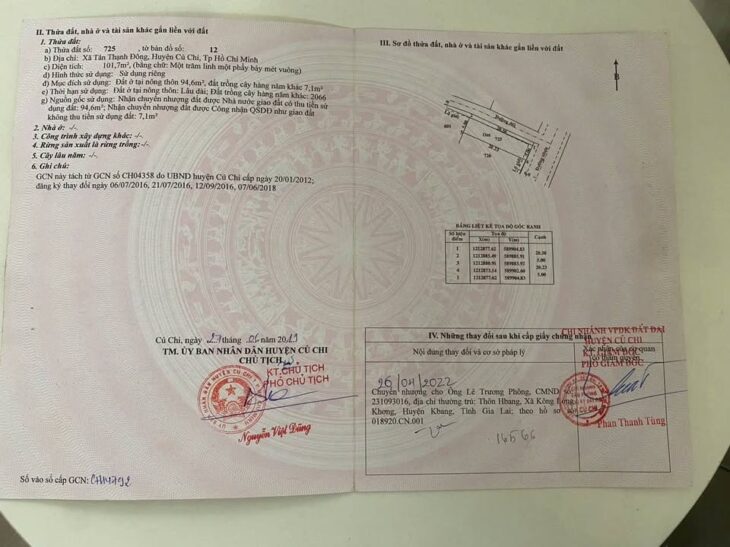 II. Thửa đất, nhà ở và tài sản khác gắn liền với đất
1. Thửa đất:
a) Thửa đất số: 725 , tờ bản đồ số: 12
b) Địa chỉ: Xã Tân Thạnh Đông, Huyện Củ Chi, Tp Hồ Chí Minh
c) Diện tích: 101,7m², (bằng chữ: Một trăm linh một phẩy bảy mét vuông)
d) Hình thức sử dụng: Sử dụng riêng
đ) Mục đích sử dụng: Đất ở tại nông thôn 94,6m², đất trồng cây hàng năm khác 7,1m²
e) Thời hạn sử dụng: Đất ở tại nông thôn: Lâu dài; Đất trồng cây hàng năm khác: 2066
g) Nguồn gốc sử dụng: Nhận chuyển nhượng đất được Nhà nước giao đất có thu tiền sử
dụng đất: 94,6m²; Nhận chuyển nhượng đất được Công nhận QSDĐ như giao đất
không thu tiền sử dụng đất: 7,1m²
2. Nhà ở: -/-
3. Công trình xây dựng khác: -/-
4. Rừng sản xuất là rừng trồng: -/-
5. Cây lâu năm: -/-
6. Ghi chú:
GCN này tách từ GCN số CH04358 do UBND huyện Củ Chi cấp ngày 20/01/2012;
đăng ký thay đổi ngày 06/07/2016, 21/07/2016, 12/09/2016, 07/06/2018
Củ Chi, ngày 27 tháng 06 năm 2019
TM. ỦY BAN NHÂN DÂN HUYỆN CỦ CHI
CHỦ TỊCH
KT.CHỦ TỊCH
PHÓ CHỦ TỊCH
Nguyễn Việt Dũng
Số vào sổ cấp GCN:
III. Sơ đồ thửa đất, nhà ở và tài sản khác gắn liền với đất
B
BẢNG LIỆT KÊ TỌA ĐỘ GÓC RANH
Số hiệu điểm Tọa độ Cạnh
X(m) Y(m)
1 1212877.62 589904.83
20.30
2
5.00
3
20.23
4
5.00
1 1212877.62 589904.83
IV. Những thay đổi sau khi cấp giấy chứng nhận
Nội dung thay đổi và cơ sở pháp lý
Xác nhận của cơ quan
có thẩm quyền
CHI NHÁNH VPĐK ĐẤT ĐAI
HUYỆN CỦ CHI
KT. GIÁM ĐỐC
PHÓ GIÁM ĐỐC
26/04/2022
Chuyển nhượng cho Ông Lê Trương Phông, CMND số
231093016, địa chỉ thường trú: Thôn Hbang, Xã Kông Lơng
Khơng, Huyện Kbang, Tỉnh Gia Lai; theo hồ sơ số
018920.CN.001
Phan Thanh Tùng